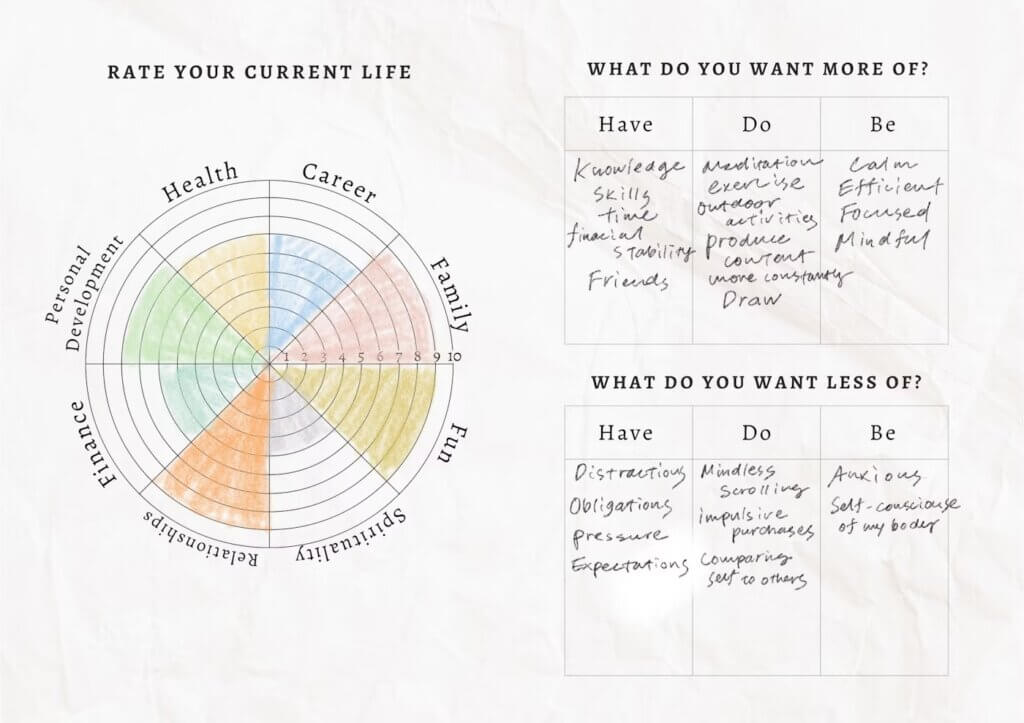 RATE YOUR CURRENT LIFE
Health
Career
Family
Fun
Spirituality
Relationships
Finance
Personal
Development
1 2 3 4 5 6 7 8 9 10
WHAT DO YOU WANT MORE OF?
Have
Knowledge
Skills
time
finacial
stability
Friends
Do
Meditation
exercise
outdoor
activities
produce
content
more constantly
Draw
Be
Calm
Efficient
Focused
Mindful
WHAT DO YOU WANT LESS OF?
Have
Distractions
Obligations
pressure
Expectations
Do
Mindless
Scrolling
impulsive
purchases
Comparing
self to others
Be
Anxious
Self-consciouse
of my body